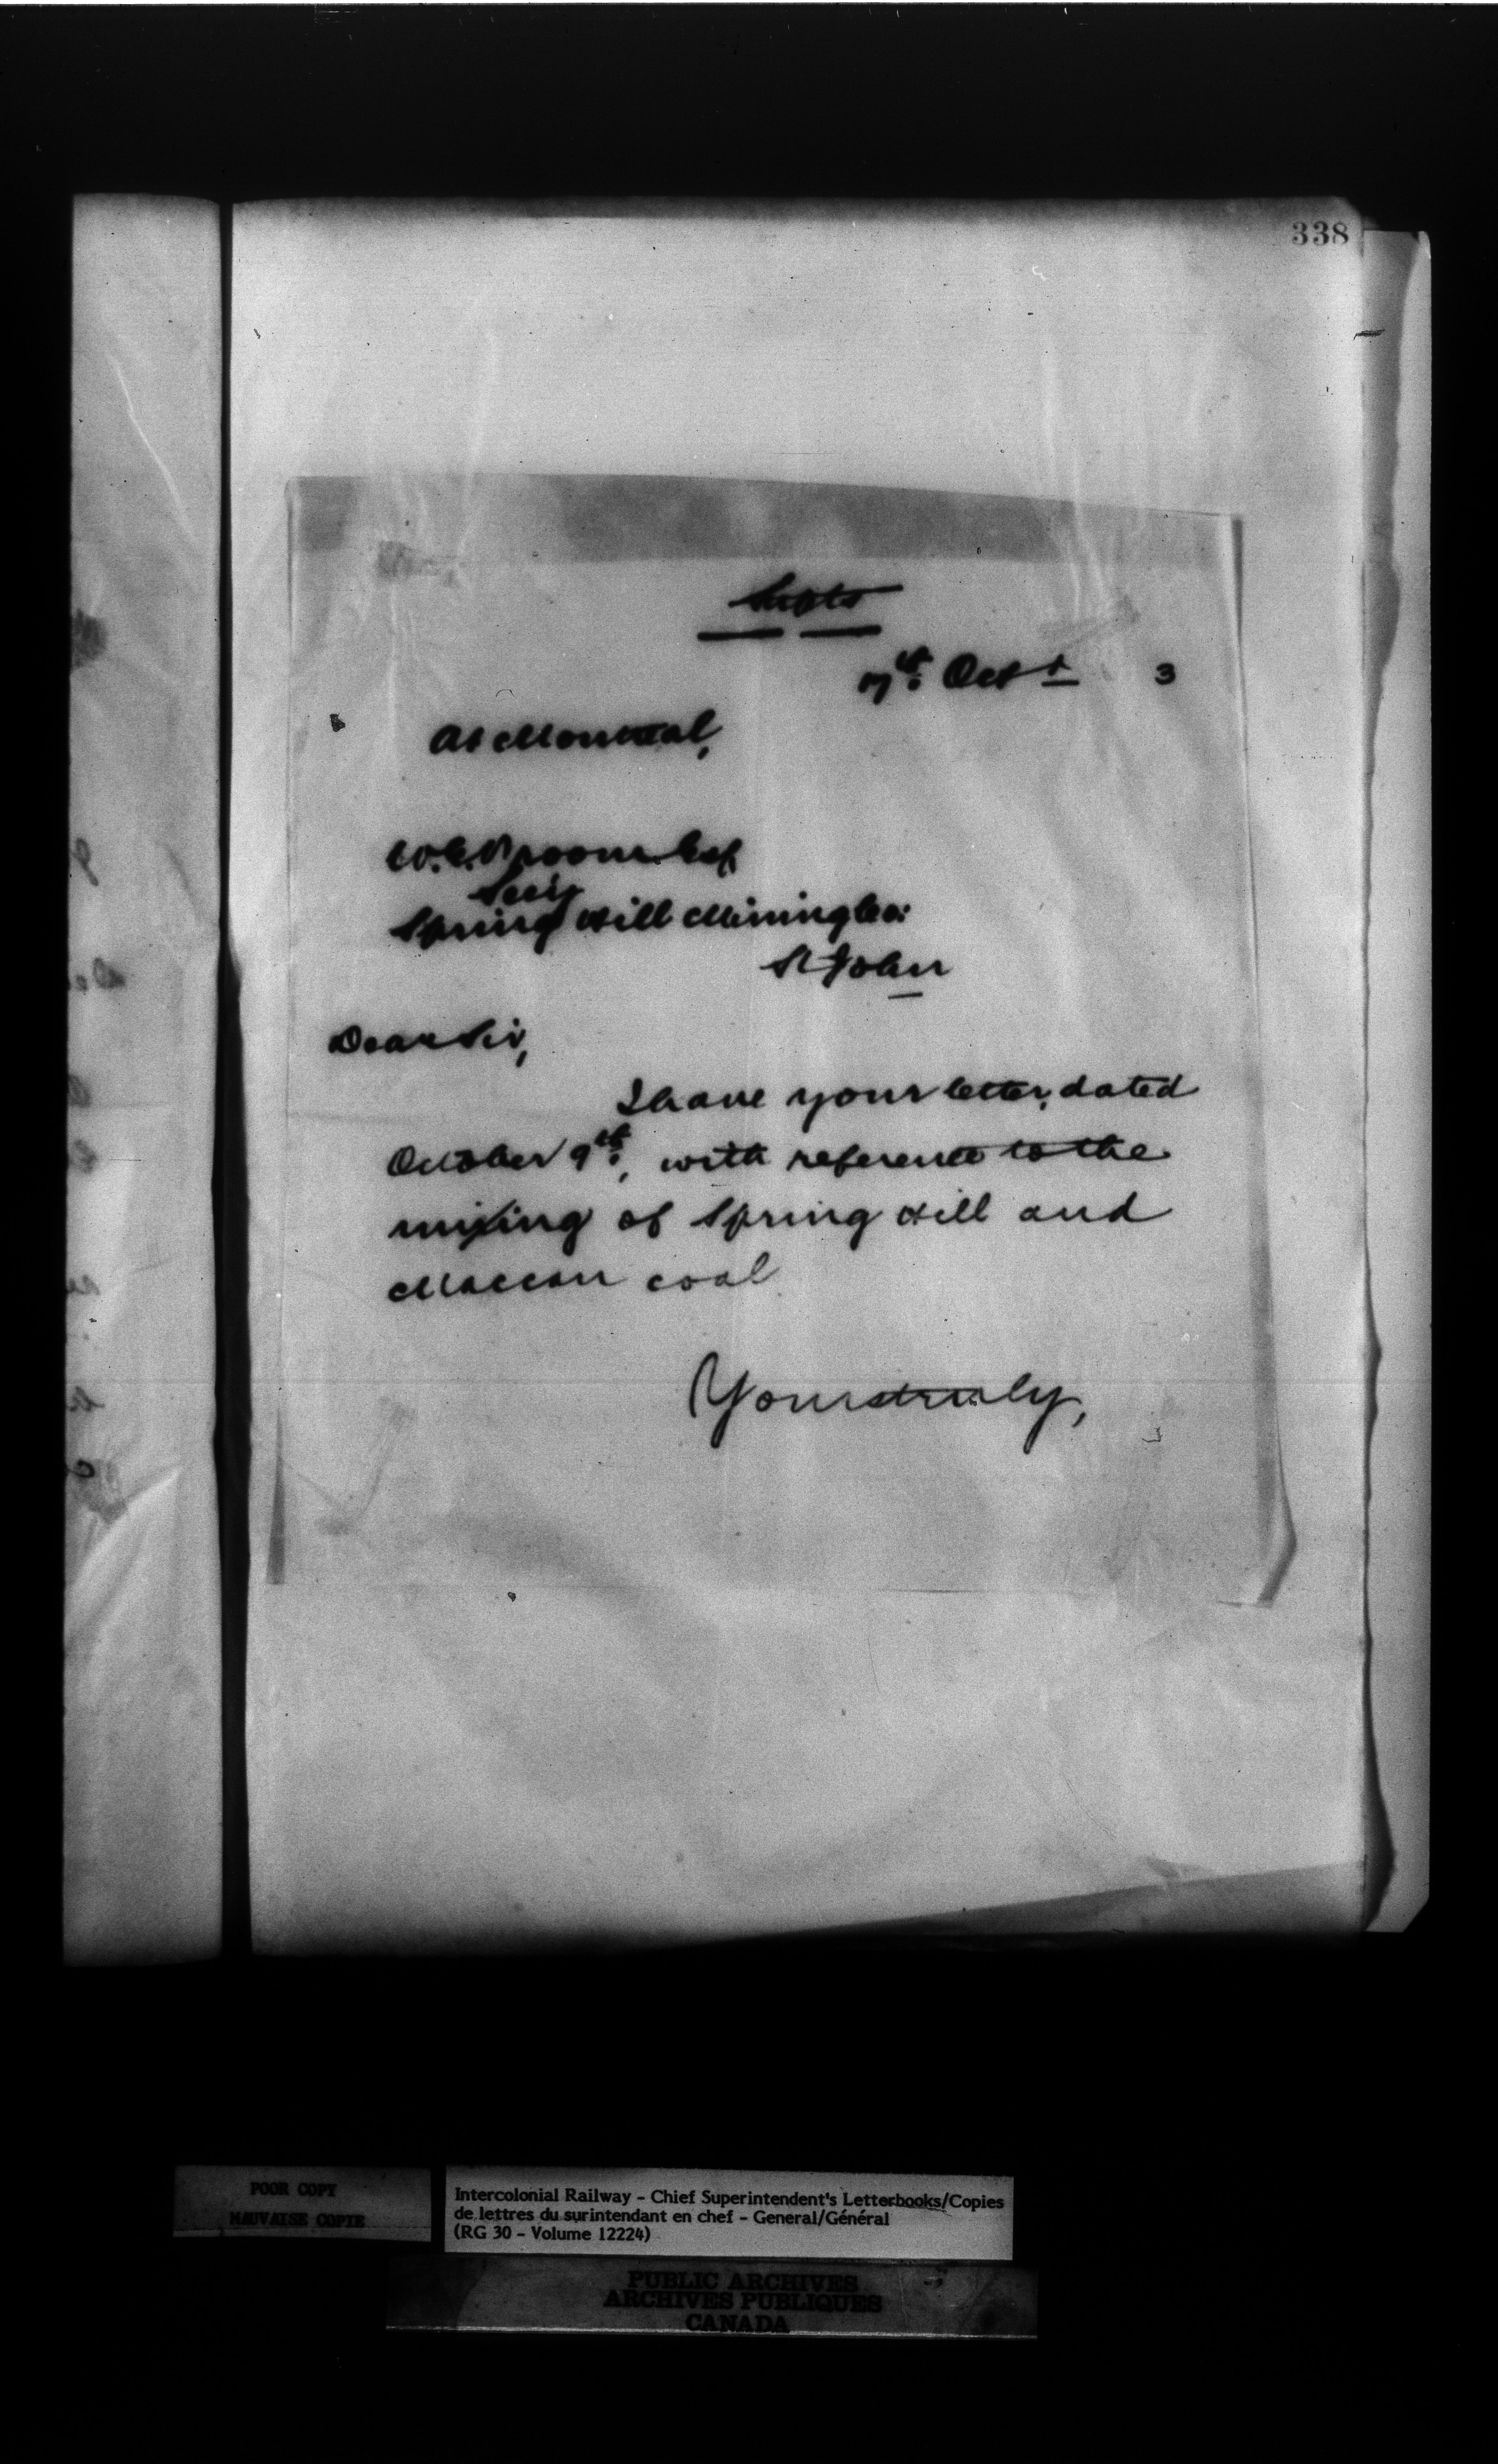 338
Supts
17th Octr 3
At Montreal,
W.E. Vroom Esq
Secy
Spring Hill Mining Co:
St John
Dear Sir,
I have your letter, dated
October 9th, with reference to the
mixing of Spring Hill and
Maccan coal
Yours truly,
POOR COPY
MAUVAISE COPIE
Intercolonial Railway - Chief Superintendent's Letterbooks/Copies
de lettres du surintendant en chef - General/Général
(RG 30 - Volume 12224)
PUBLIC ARCHIVES
ARCHIVES PUBLIQUES
CANADA